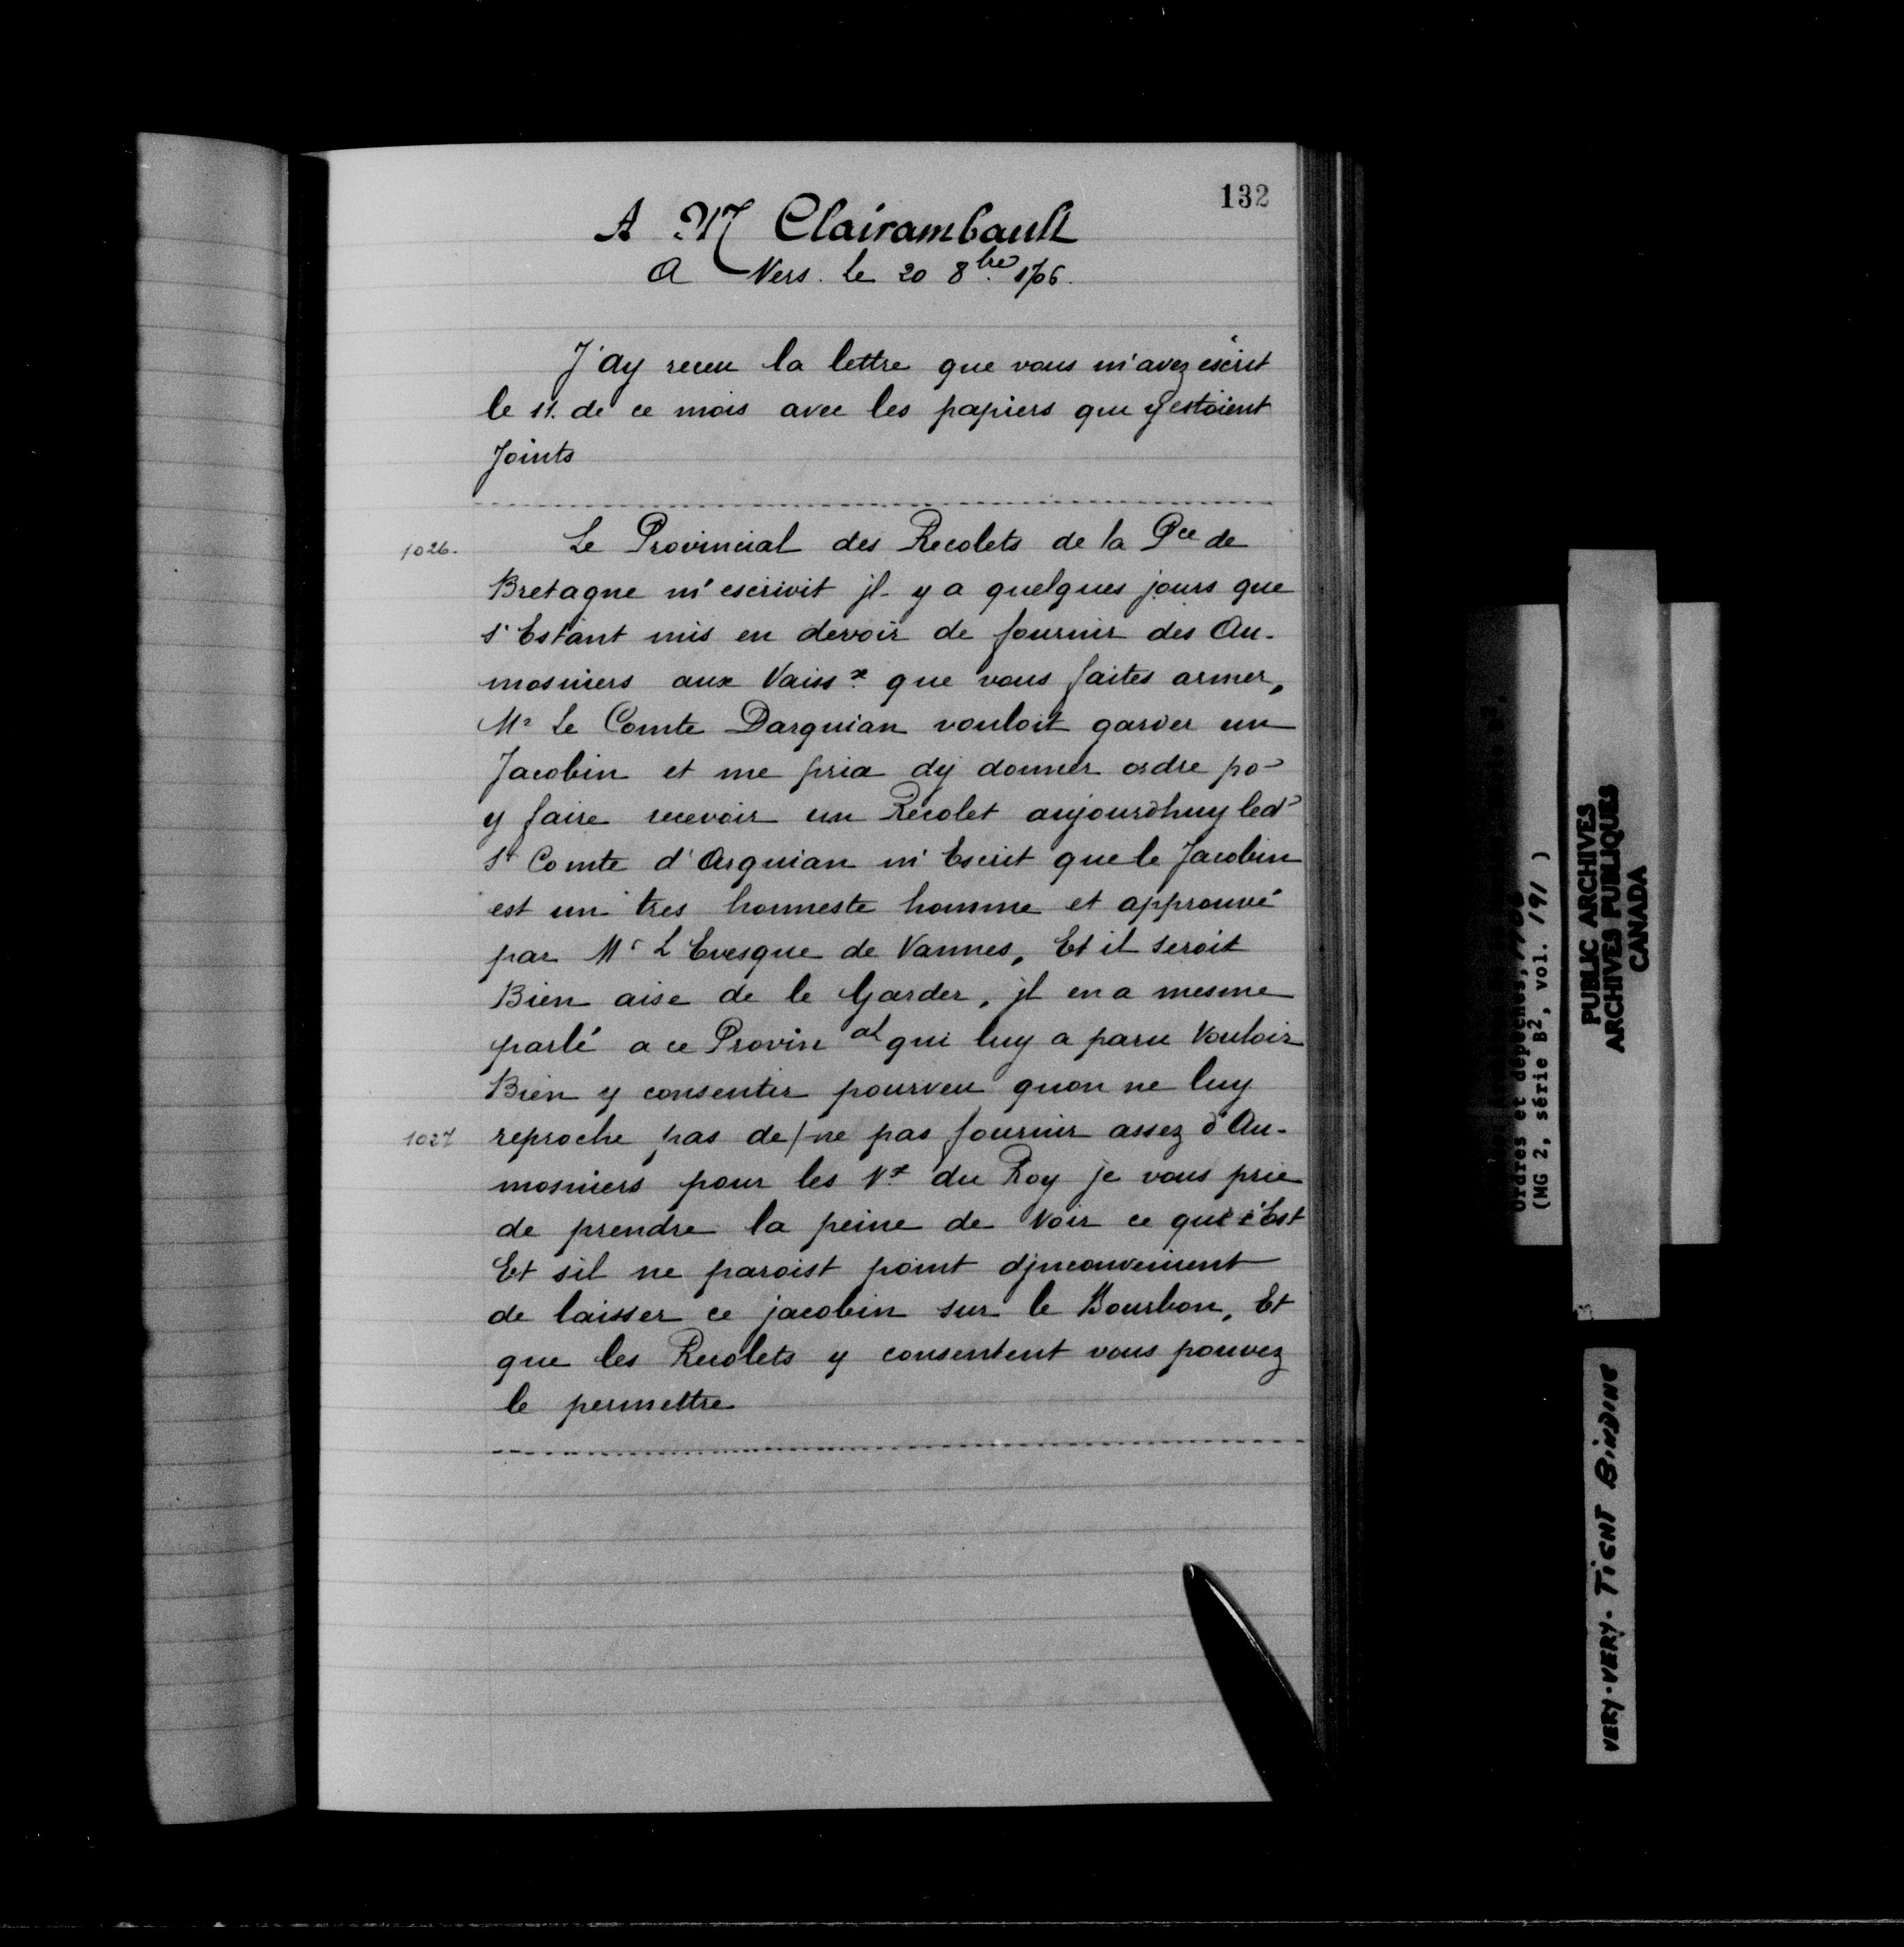 132
A M Clairambault
A Vers. le 20 8bre 1706.
J'ay receu la lettre que vous m'avez escrit
le 11. de ce mois avec les papiers qui y estoient
Joints
1026.
Le Provincial des Recolets de la Pce de
Bretagne m'escrivit jl y a quelques jours que
s'Estant mis en devoir de fournir des Au-
mosniers aux Vaissx que vous faites armer,
Mr Le Comte Darquian vouloit garder un
Jacobin et me pria dy donner ordre po
y faire recevoir un Recolet aujourdhuy led
Sr Comte d'Arquian m'Escrit que le Jacobin
est un tres honneste homme et approuvé
par Mr L'Evesque de Vannes, Et il seroit
Bien aise de le Garder, jl en a mesme
parlé a ce Provin al qui luy a paru Vouloir
Bien y consentir pourveu quon ne luy
1027
reproche pas de / ne pas fournir assez d'Au-
mosniers pour les Vx du Roy je vous prie
de prendre la peine de Voir ce que c'Est
Et sil ne paroist point djnconvenient
de laisser ce jacobin sur le Bourbon, Et
que les Recolets y consentent vous pouvez
le permettre
Ordres et dépêches,
(MG 2, série B2, vol. 191 )
PUBLIC ARCHIVES
ARCHIVES PUBLIQUES
CANADA
VERY-VERY-TIGHT BINDING